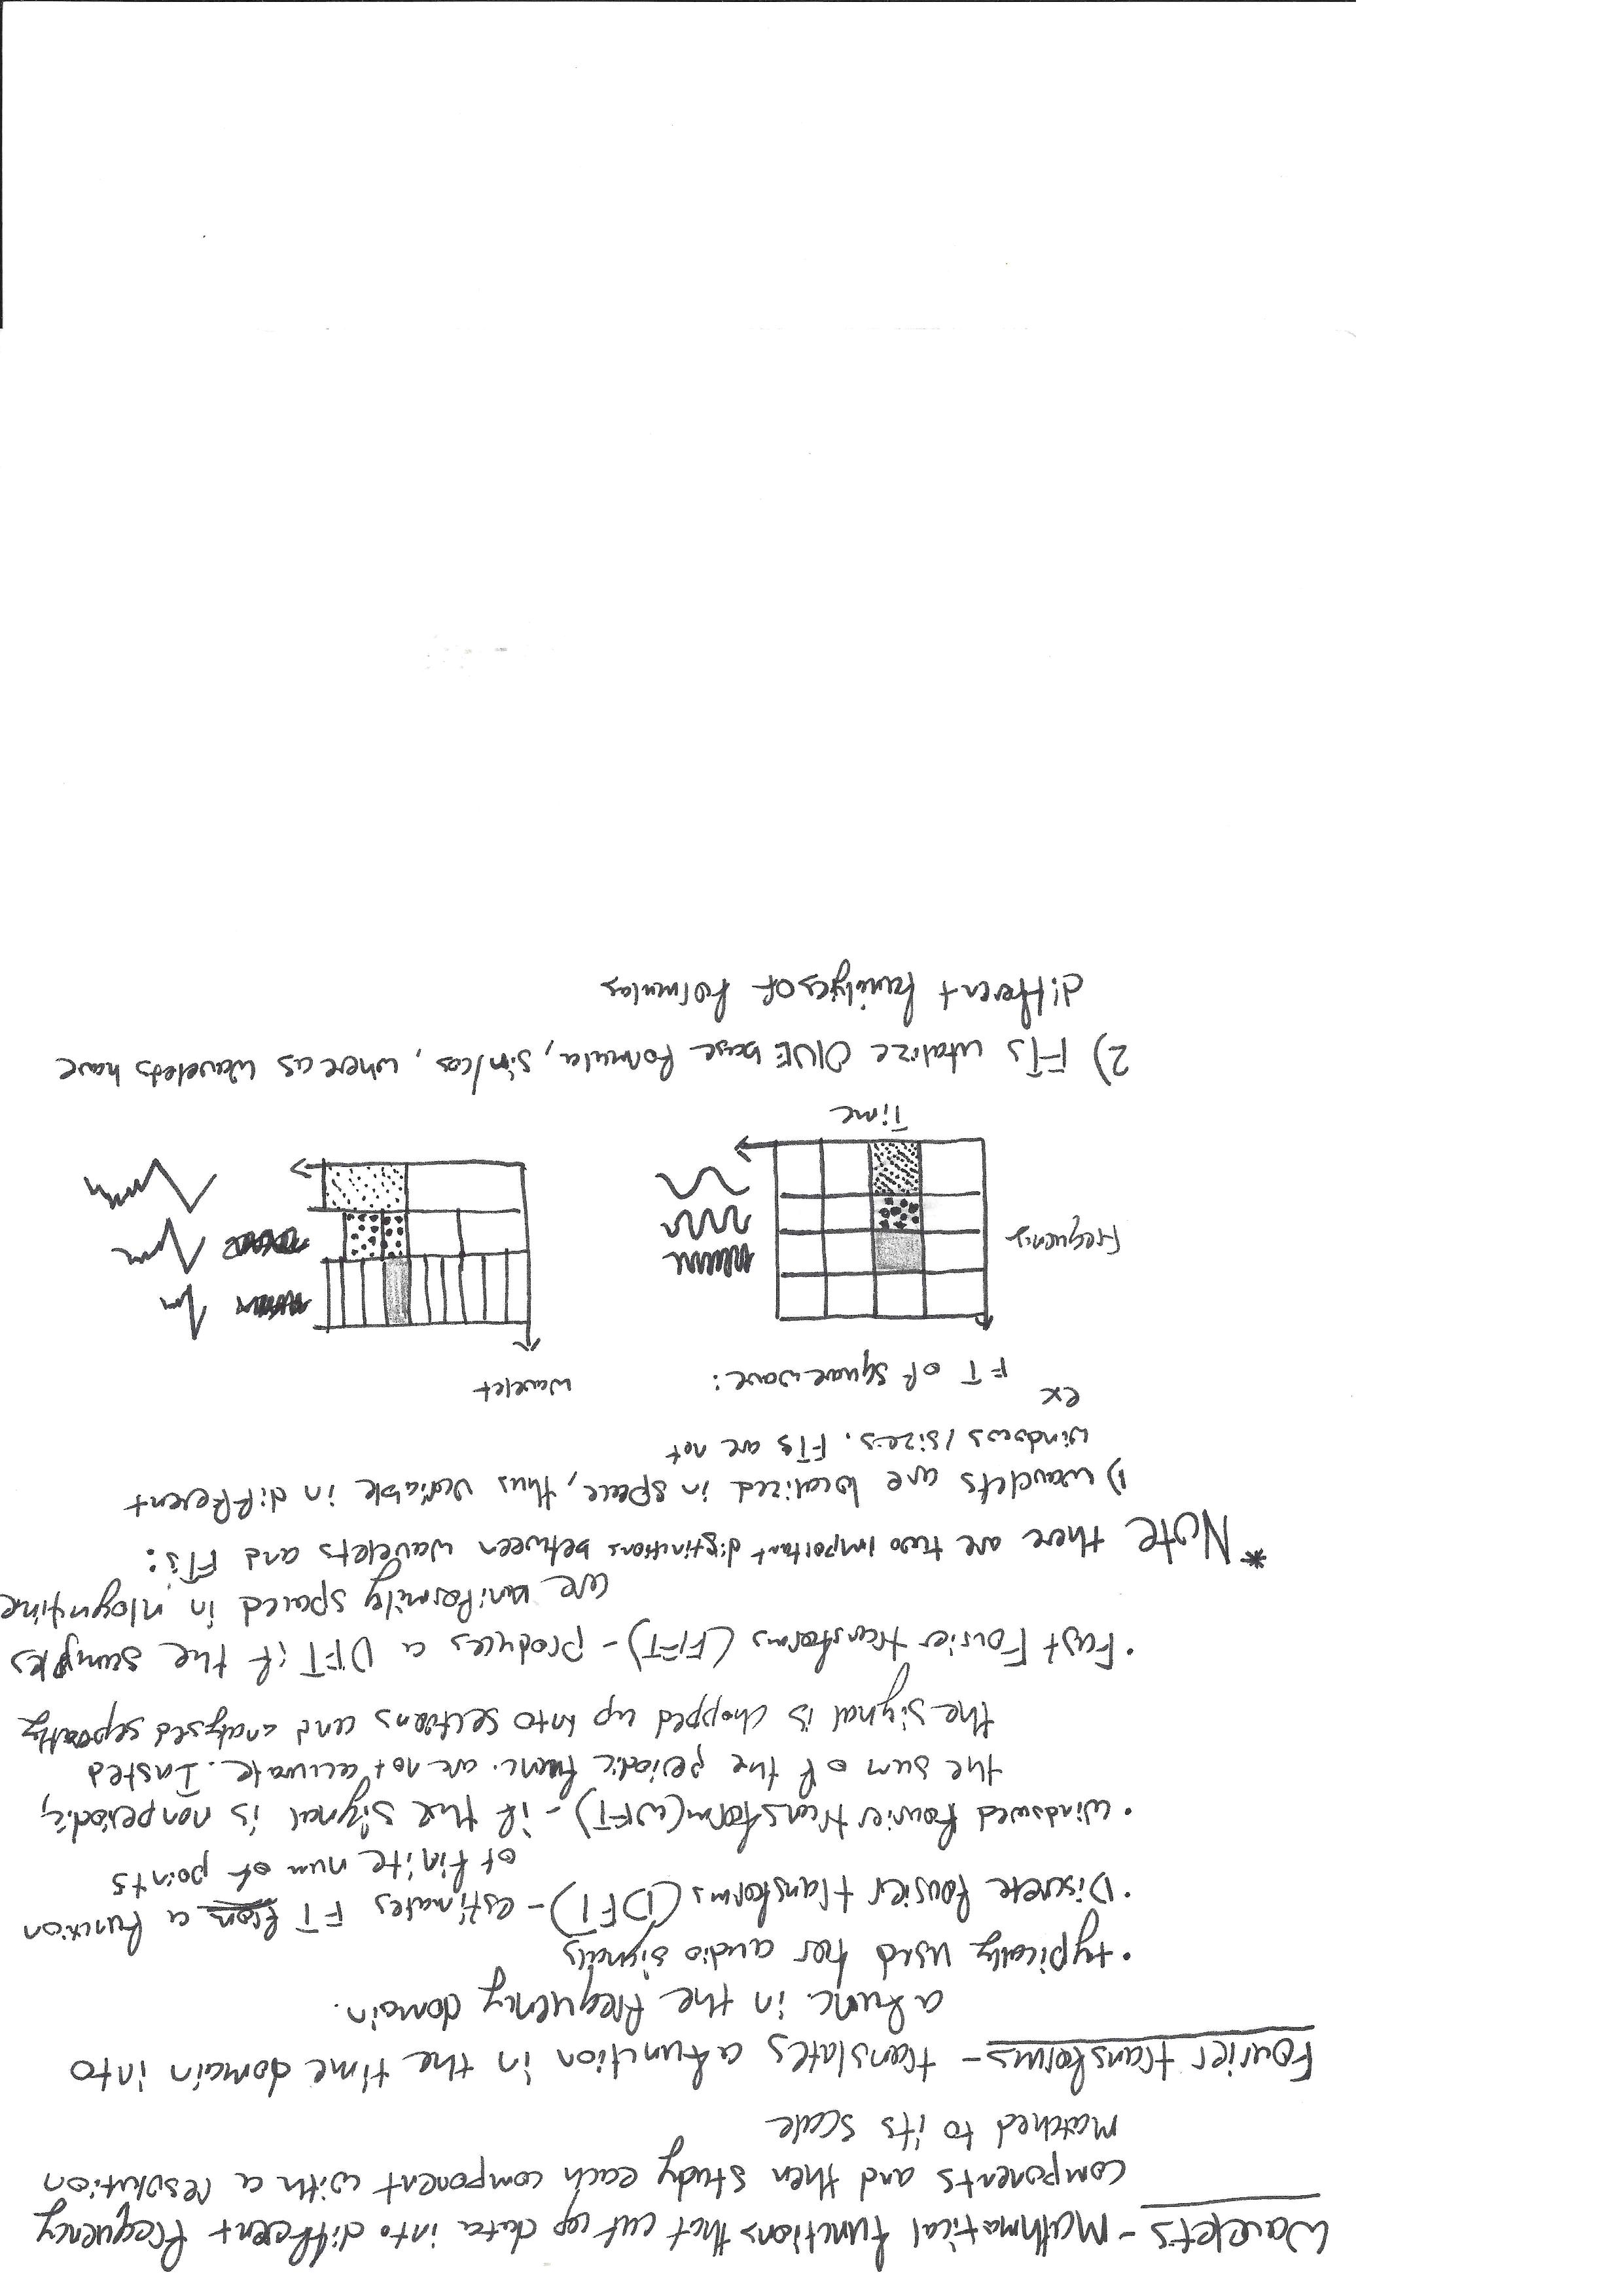 Wavelets - Mathmatical functions that cut up data into different frequency
components and then study each component with a resolution
matched to its scale
Fourier transforms - translates a function in the time domain into
a func. in the frequency domain.
• typically used for audio signals
• Discrete fourier transforms (DFT) - estimates FT from a function
of finite num of points
• windowed fourier transform (WFT) - if the signal is nonperiodic,
the sum of the periodic func. are not accurate. Insted
the signal is chopped up into sections and analyzed separatly
• Fast Fourier transforms (FFT) - produces a DFT if the samples
are uniformily spaced in nlogn time
* Note there are two important distinctions between wavelets and FTs:
1) wavelets are localized in space, thus variable in different
windows/sizes. FTs are not
ex
FT of square wave:
wavelet
frequency
Time
2) FTs utalize ONE base formula, sin/cos, where as wavelets have
different familyes of formulas